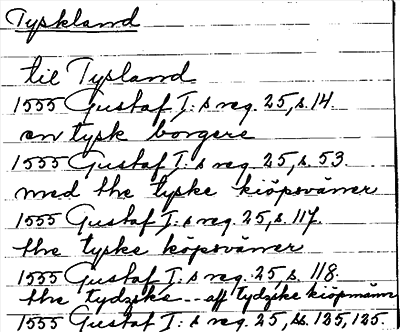 Tyskland
til Tysland
1555 Gustaf I:s reg. 25, s. 14.
en tysk borgere
1555 Gustaf I:s reg. 25, s. 53.
med the tyske kiöpsvänner
1555 Gustaf I:s reg. 25, s. 117.
the tyske köpsvänner
1555 Gustaf I:s reg. 25, s. 118.
the tydzske -- aff tydzske kiöpmänn
1555 Gustaf I:s reg. 25, ss. 125, 125.